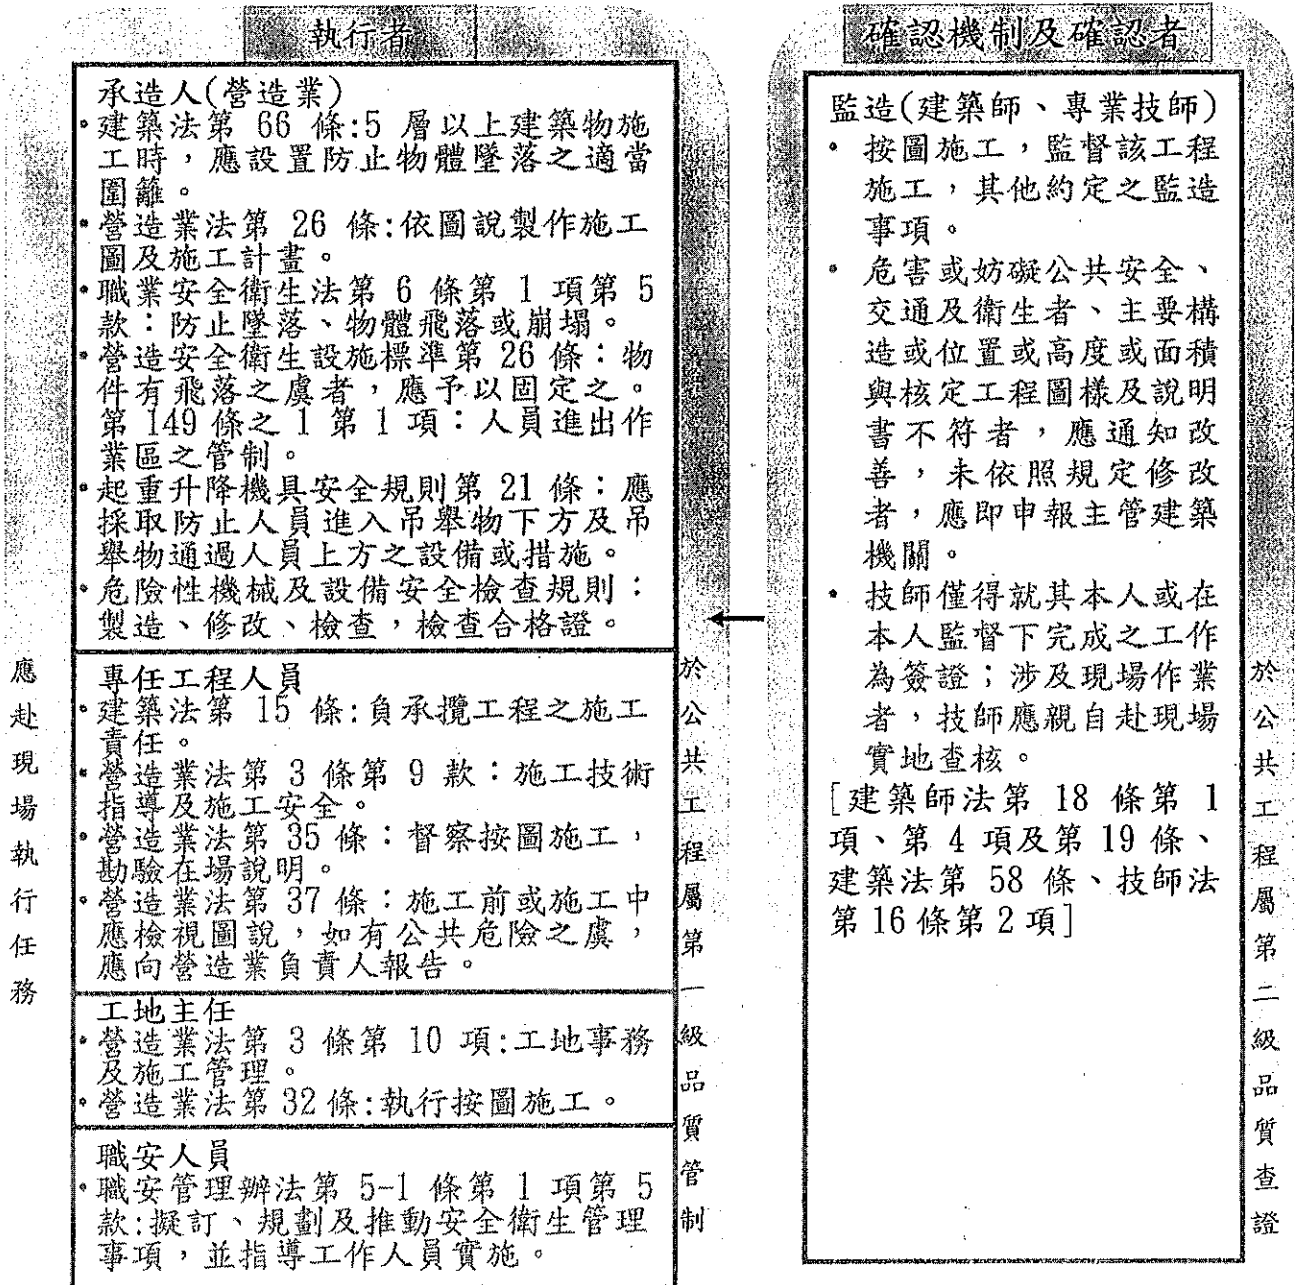 執行者
承造人(營造業)
•建築法第 66 條:5 層以上建築物施
工時，應設置防止物體墜落之適當
圍籬。
•營造業法第 26 條:依圖說製作施工
圖及施工計畫。
•職業安全衛生法第 6 條第 1 項第 5
款：防止墜落、物體飛落或崩塌。
•營造安全衛生設施標準第 26 條：物
件有飛落之虞者，應予以固定之。
第 149 條之 1 第 1 項：人員進出作
業區之管制。
•起重升降機具安全規則第 21 條：應
採取防止人員進入吊舉物下方及吊
舉物通過人員上方之設備或措施。
•危險性機械及設備安全檢查規則：
製造、修改、檢查，檢查合格證。
專任工程人員
•建築法第 15 條:負承攬工程之施工
責任。
•營造業法第 3 條第 9 款：施工技術
指導及施工安全。
•營造業法第 35 條：督察按圖施工，
勘驗在場說明。
•營造業法第 37 條：施工前或施工中
應檢視圖說，如有公共危險之虞，
應向營造業負責人報告。
工地主任
•營造業法第 3 條第 10 項:工地事務
及施工管理。
•營造業法第 32 條:執行按圖施工。
職安人員
•職安管理辦法第 5-1 條第 1 項第 5
款:擬訂、規劃及推動安全衛生管理
事項，並指導工作人員實施。
應赴現場執行任務
於公共工程屬第一級品質管制
確認機制及確認者
監造(建築師、專業技師)
• 按圖施工，監督該工程
施工，其他約定之監造
事項。
• 危害或妨礙公共安全、
交通及衛生者、主要構
造或位置或高度或面積
與核定工程圖樣及說明
書不符者，應通知改
善，未依照規定修改
者，應即申報主管建築
機關。
• 技師僅得就其本人或在
本人監督下完成之工作
為簽證；涉及現場作業
者，技師應親自赴現場
實地查核。
[建築師法第 18 條第 1
項、第 4 項及第 19 條、
建築法第 58 條、技師法
第 16 條第 2 項]
於公共工程屬第二級品質查證